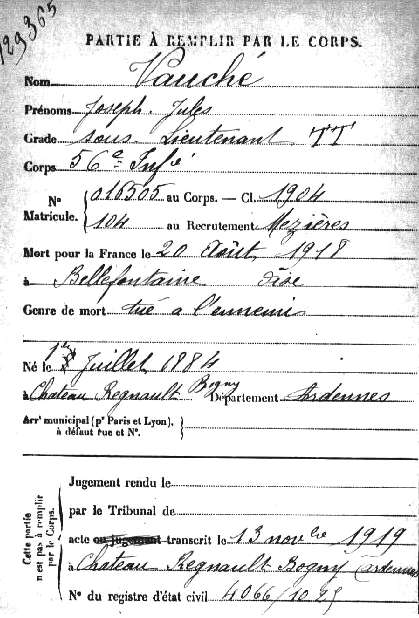 129365
PARTIE À REMPLIR PAR LE CORPS.
Nom Vauché
Prénoms Joseph Jules
Grade sous-Lieutenant TT
Corps 56e Infie
N° Matricule. 016505 au Corps. — Cl. 1904
104 au Recrutement Mezières
Mort pour la France le 20 Août 1918
à Bellefontaine Oise
Genre de mort tué a l'ennemi
Né le 1er Juillet 1884
à Chateau Regnault Bogny Département Ardennes
Arrt municipal (pr Paris et Lyon),
à défaut rue et N°.
Cette partie
n'est pas à remplir
par le Corps.
Jugement rendu le
par le Tribunal de
acte ou jugement transcrit le 13 novbre 1919
à Chateau Regnault Bogny (Ardennes
N° du registre d'état civil 4066/10